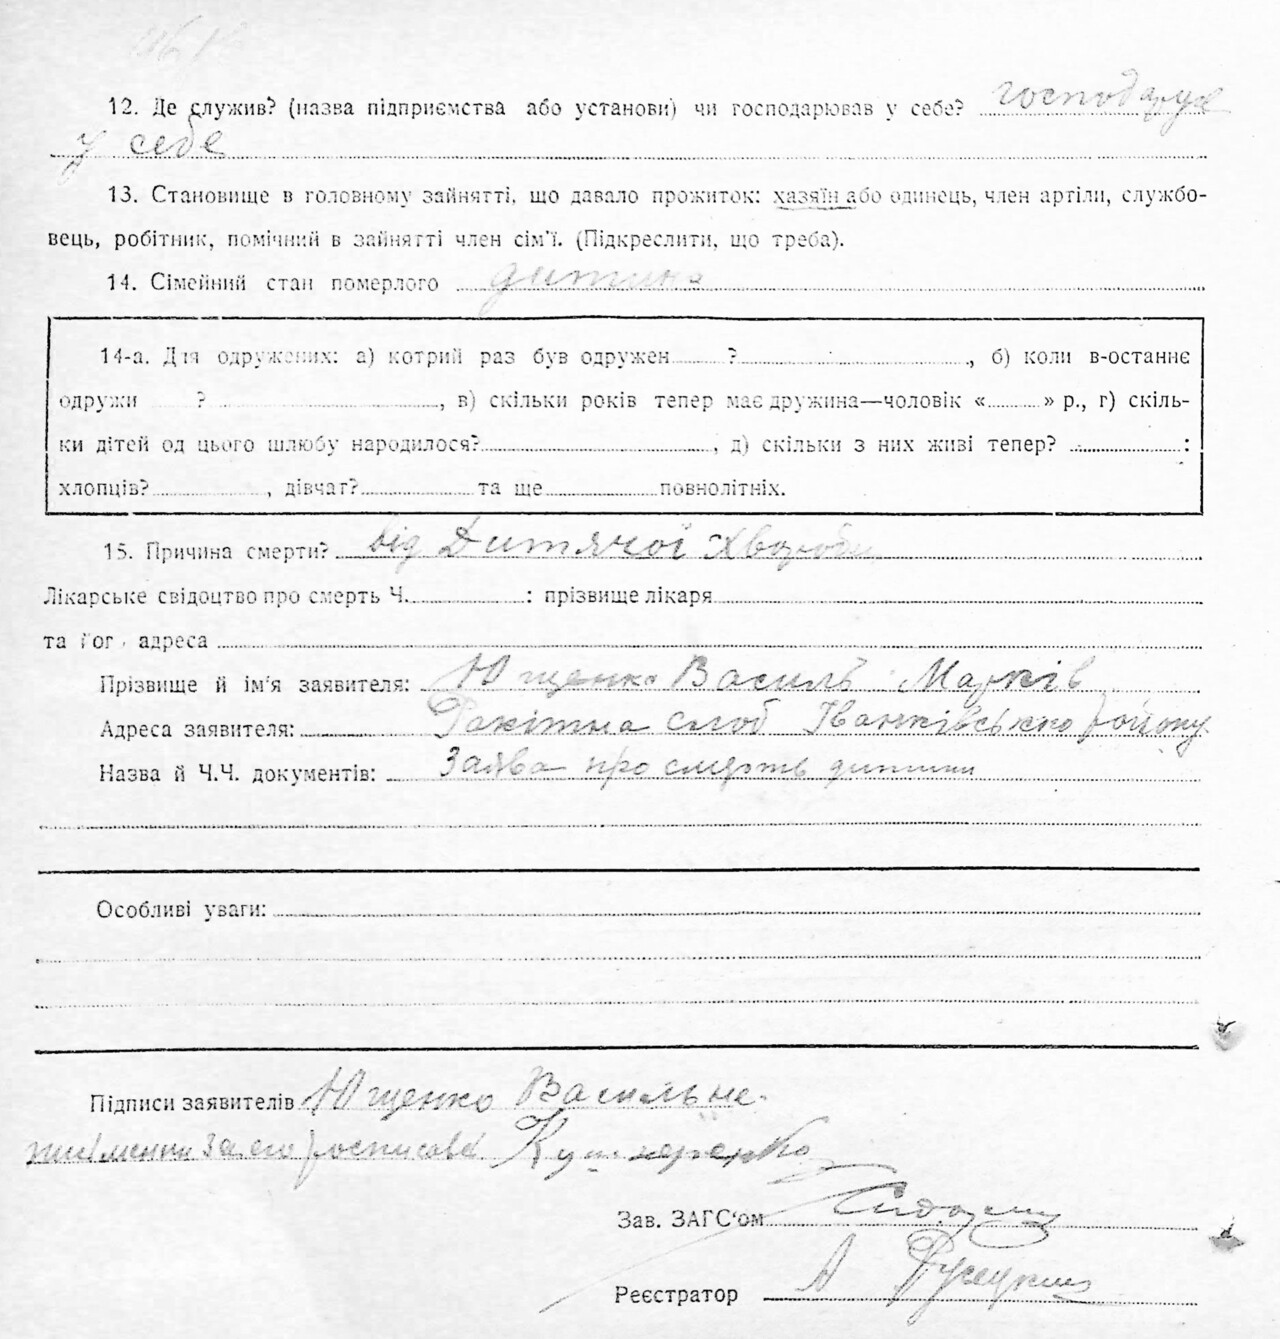 12. Де служив? (назва підприємства або установи) чи господарював у себе? господарує
у себе
13. Становище в головному зайнятті, що давало прожиток: хазяїн або одинець, член артіли, службо-
вець, робітник, помічний в зайнятті член сім'ї. (Підкреслити, що треба).
14. Сімейний стан померлого дитина
14-а. Для одружених: а) котрий раз був одружен ? , б) коли в-останнє
одружи ? , в) скільки років тепер має дружина—чоловік « » р., г) скіль-
ки дітей од цього шлюбу народилося? , д) скільки з них живі тепер? :
хлопців? , дівчат? та ще повнолітніх.
15. Причина смерти? від Дитячої Хвороби
Лікарське свідоцтво про смерть Ч. : прізвище лікаря
та його адреса
Прізвище й ім'я заявителя: Ющенко Василь Марків
Адреса заявителя: Ракітна слоб Іванківського району
Назва й Ч.Ч. документів: Заява про смерть дитини
Особливі уваги:
Підписи заявителів Ющенко Василь не-
письменни за его росписавсі
Зав. ЗАГС'ом
Реєстратор А